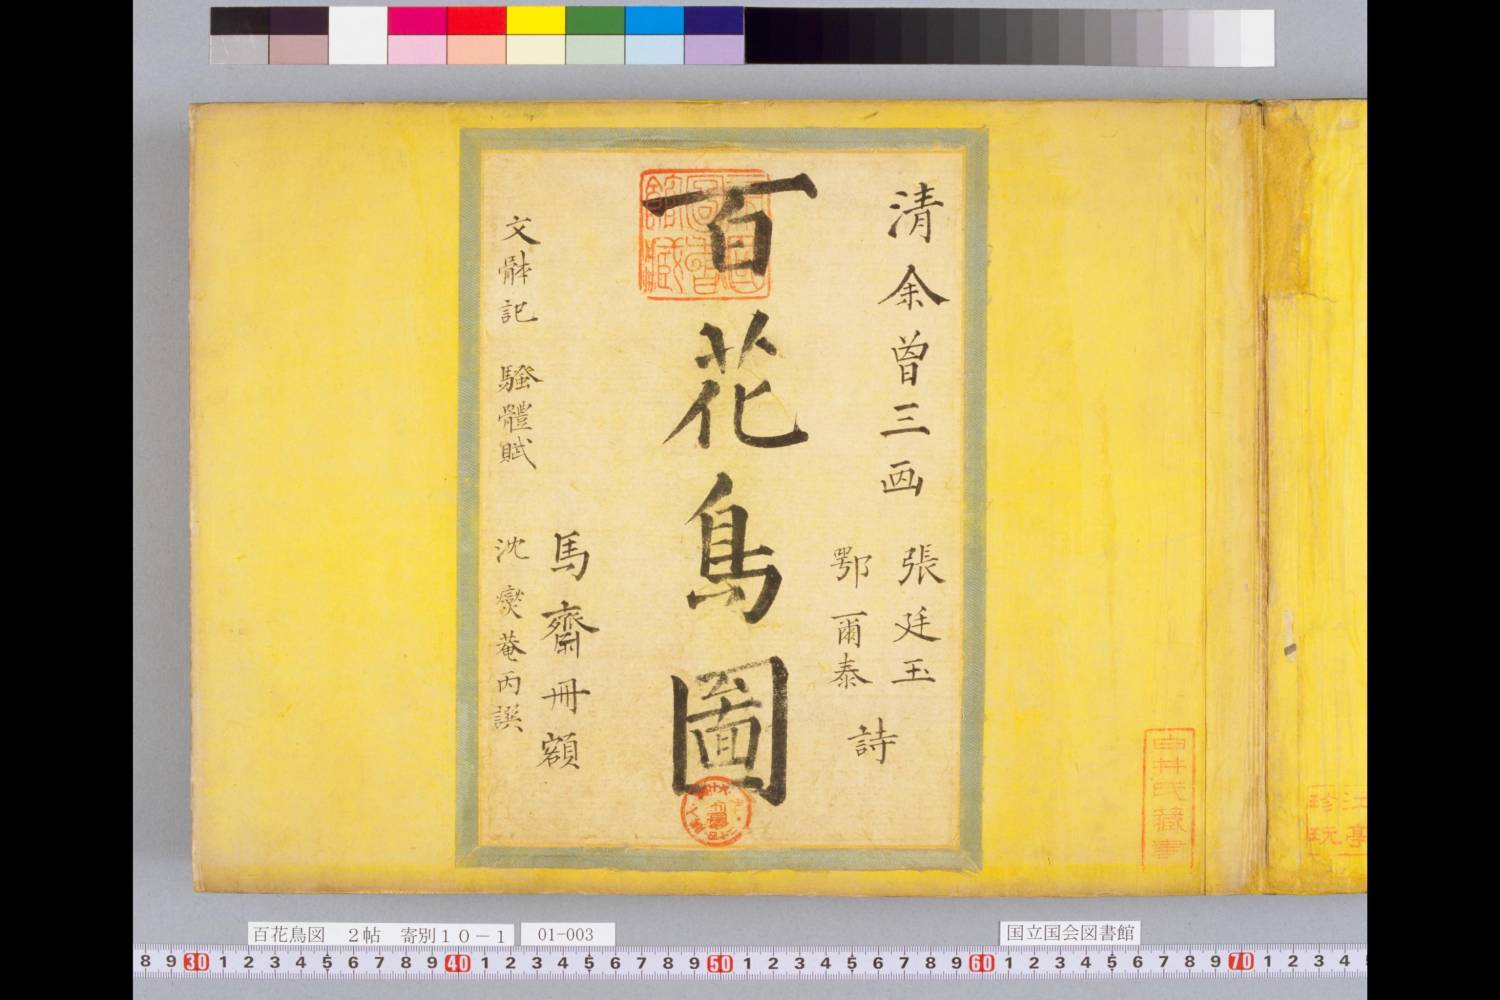 清余曾三画
張廷玉
鄂爾泰
詩
百花鳥圖
馬齋冊額
文骵記 騷體賦
沈 菴丙譔
帝國圖書館藏
白井氏藏書
江亭
珍玩
百花鳥図 2帖 寄別10-1
01-003
国立国会図書館
8 9 30 1 2 3 4 5 6 7 8 9 40 1 2 3 4 5 6 7 8 9 50 1 2 3 4 5 6 7 8 9 60 1 2 3 4 5 6 7 8 9 70 1 2 3 4